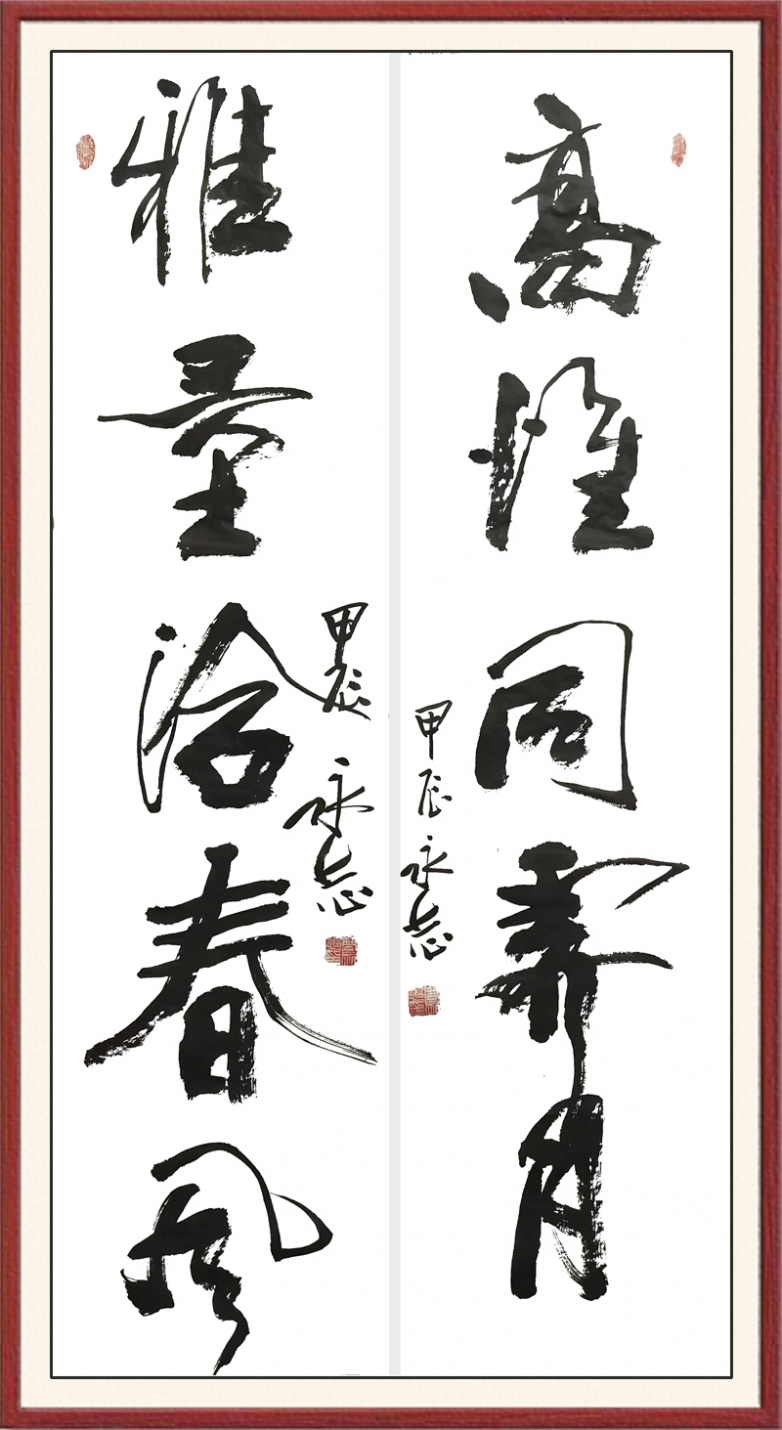 高惟同霁月
甲辰永志
雅量洽春风
甲辰永志